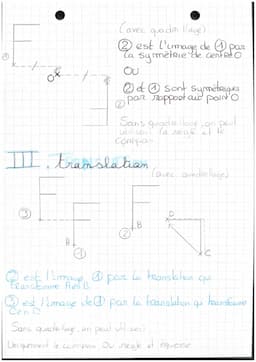 (avec quadrillage)
② est l'image de ① par
la symétrie de centre O
OU
② et ① sont symétriques
par rapport au point O
Sans quadrillage, on peut
utiliser la règle et le
compas
III. translation
(avec quadrillage)
② est l'image ① par la translation qui
transforme A en B.
③ est l'image de ① par la translation qui transforme
C en D
Sans quadrillage, on peut utiliser
uniquement le compas OU règle et équerre